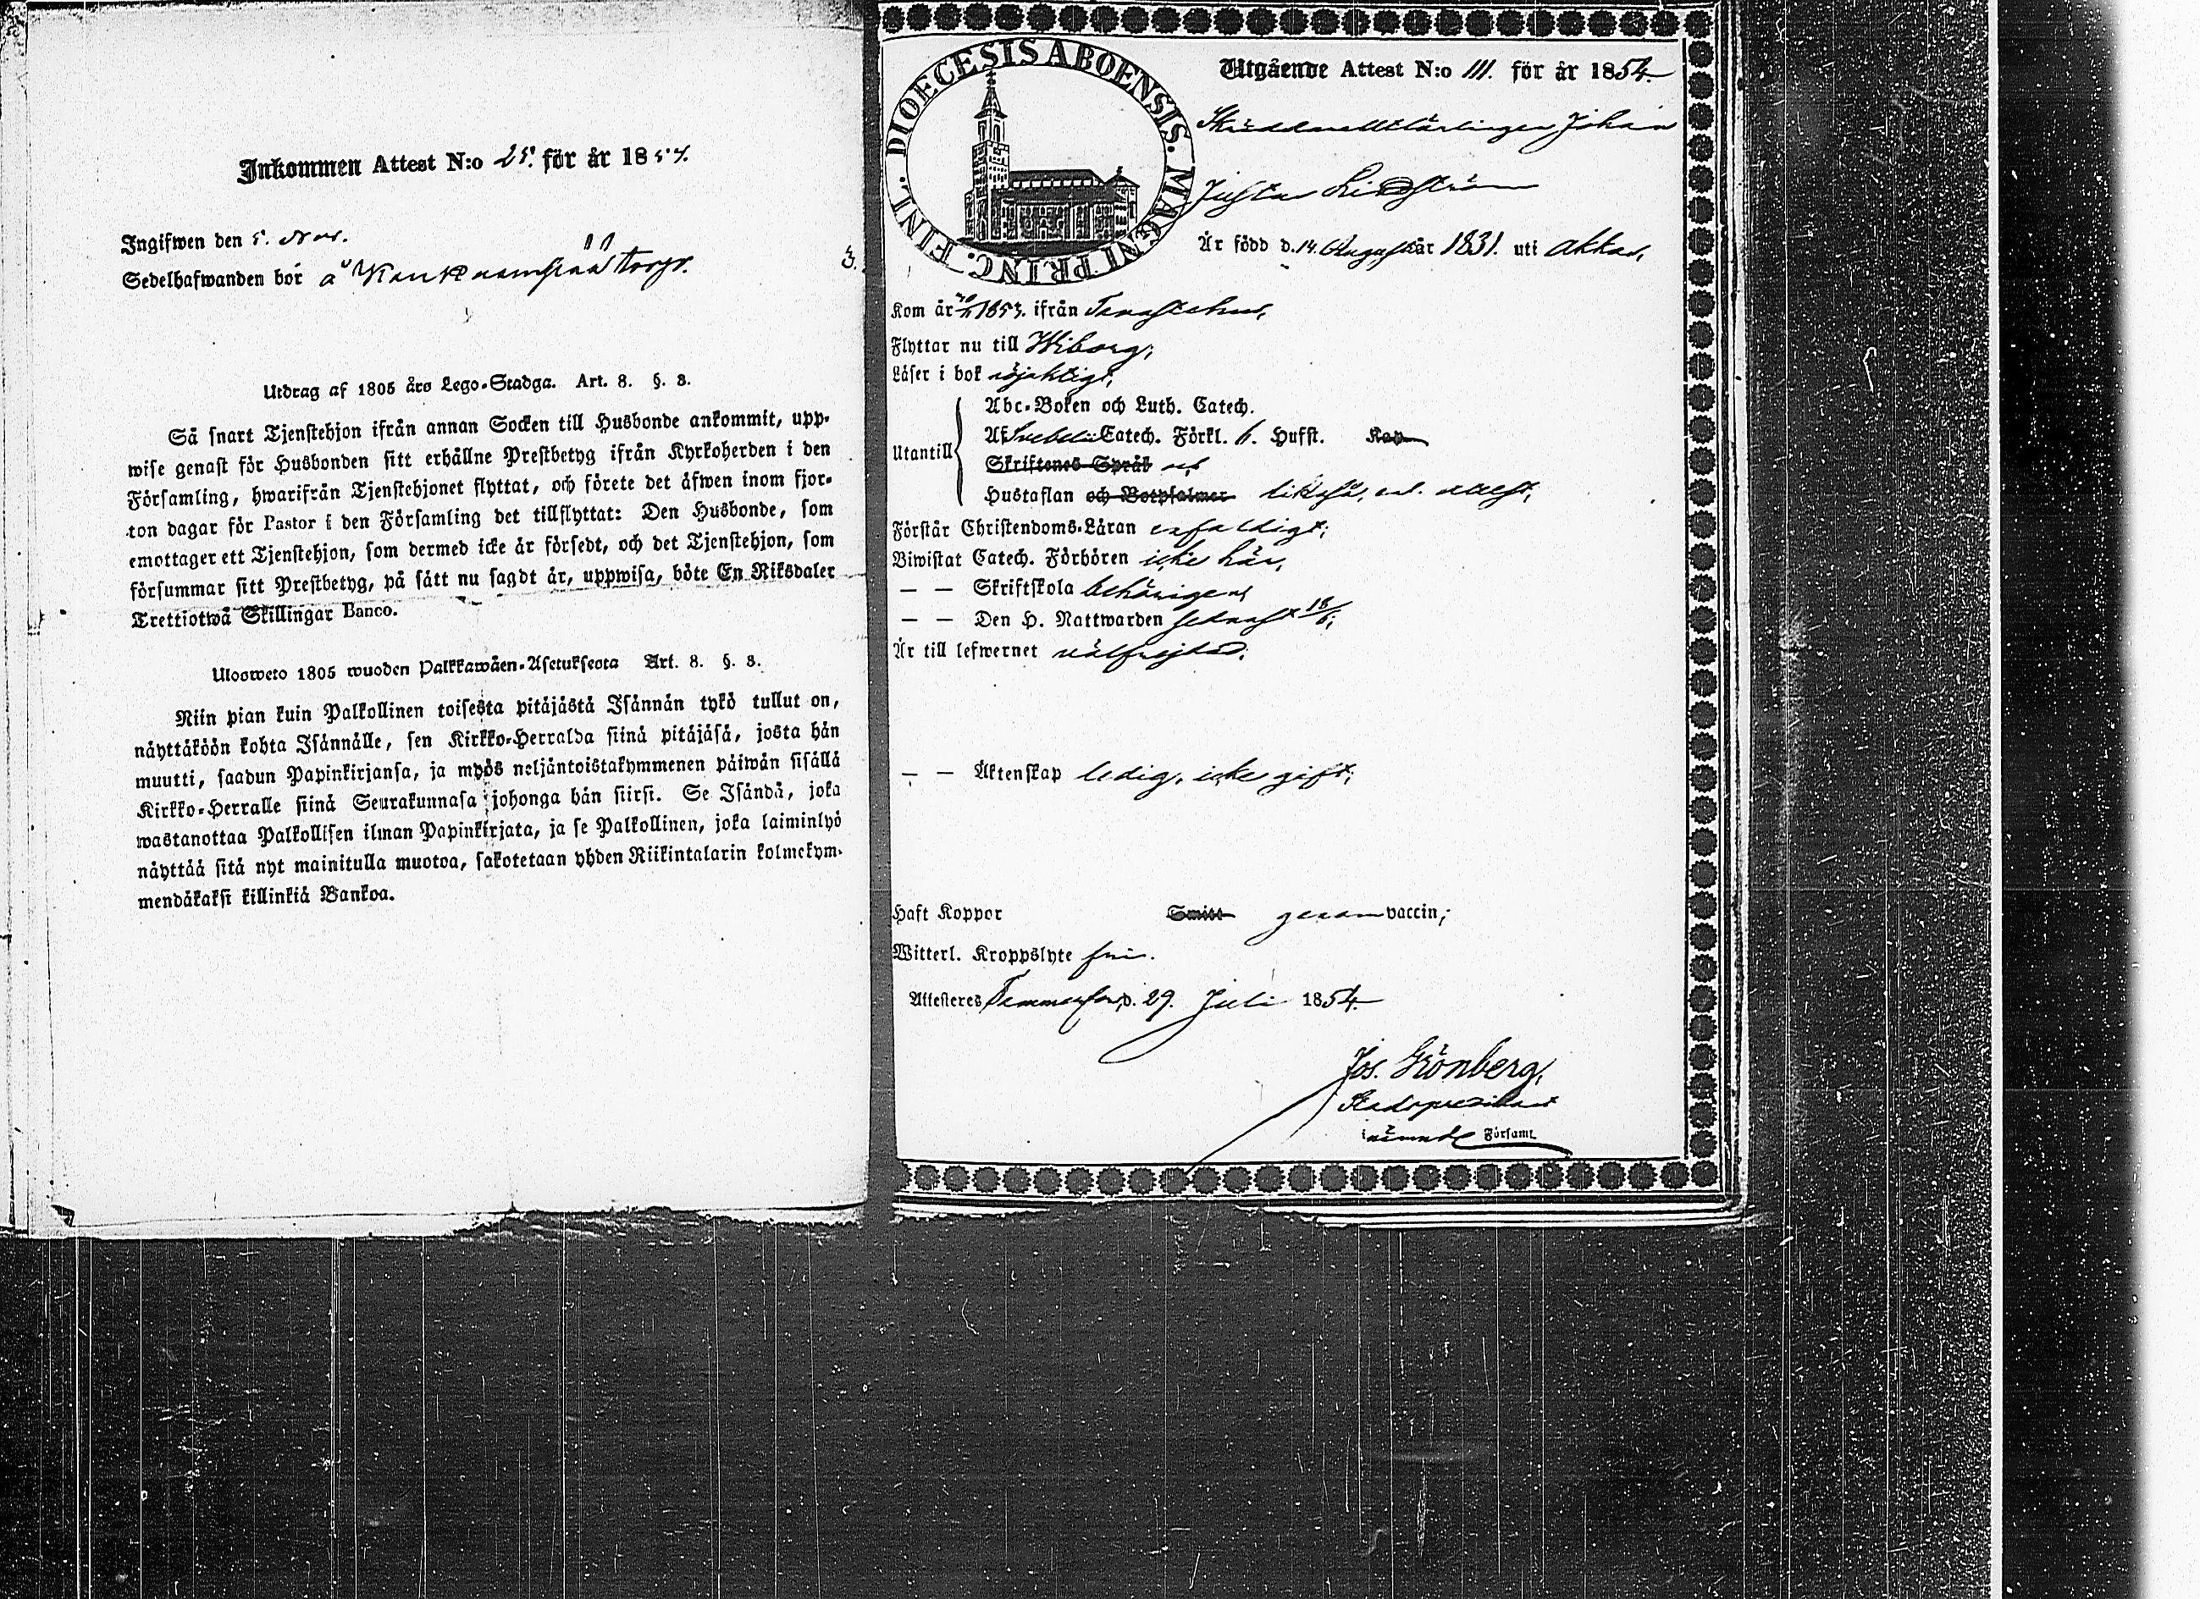 Inkommen Attest N:o 25. för år 1854.
Ingifwen den 5. Nov.
Sedelhafwanden bor å torp.
3.
Utdrag af 1805 års Lego-Stadga. Art. 8. §. 3.
Så snart Tjenstehjon ifrån annan Socken till Husbonde ankommit, upp-
wise genast för Husbonden sitt erhållne Prestbetyg ifrån Kyrkoherden i den
Församling, hwarifrån Tjenstehjonet flyttat, och förete det äfwen inom fjor-
ton dagar för Pastor i den Församling det tillflyttat: Den Husbonde, som
emottager ett Tjenstehjon, som dermed icke är försedt, och det Tjenstehjon, som
försummar sitt Prestbetyg, på sätt nu sagdt är, uppwisa, böte En Riksdaler
Trettiotwå Skillingar Banco.
Ulosweto 1805 wuoden Palkkawäen-Asetuksesta Art. 8. §. 3.
Niin pian kuin Palkollinen toisesta pitäjästä Isännän tykö tullut on,
näyttäköön kohta Isännälle, sen Kirkko-Herralda siinä pitäjäsä, josta hän
muutti, saadun Papinkirjansa, ja myös neljäntoistakymmenen päiwän sisällä
Kirkko-Herralle siinä Seurakunnasa johonga hän siirsi. Se Isändä, joka
wastanottaa Palkollisen ilman Papinkirjata, ja se Palkollinen, joka laiminlyö
näyttää sitä nyt mainitulla muotoa, sakotetaan yhden Riikintalarin kolmekym-
mendäkaksi killinkiä Bankoa.
DIOECESIS ABOENSIS. MAGNI PRINC. FINL.
Utgående Attest N:o 111. för år 1854
Skräddarelärlingen Johan
Gustaf Lindström
Är född d. 14. Augusti år 1831. uti Akkas,
Kom år 1853. ifrån Tavastehus,
Flyttar nu till Wiborg;
Läser i bok nöjaktigt,
Utantill
Abc-Boken och Luth. Catech.
Af Svebelii Catech. Förkl. 6. Hufst. Kap
Skriftenes Språk
Hustaflan och Botpsalmer likaså,
Förstår Christendoms-Läran enfaldigt;
Biwistat Catech. Förhören icke här,
— — Skriftskola behörigen
— — Den H. Nattwarden sednast 18/6;
Är till lefwernet välfrejdad;
— — Äktenskap ledig, icke gift;
Haft Koppor Smitt genom vaccin;
Witterl. Kroppslyte fri.
Attesteres Tammerfors d. 29. Juli 1854
Jos. Grönberg,
Stadspredikant
i nämnde Församl.